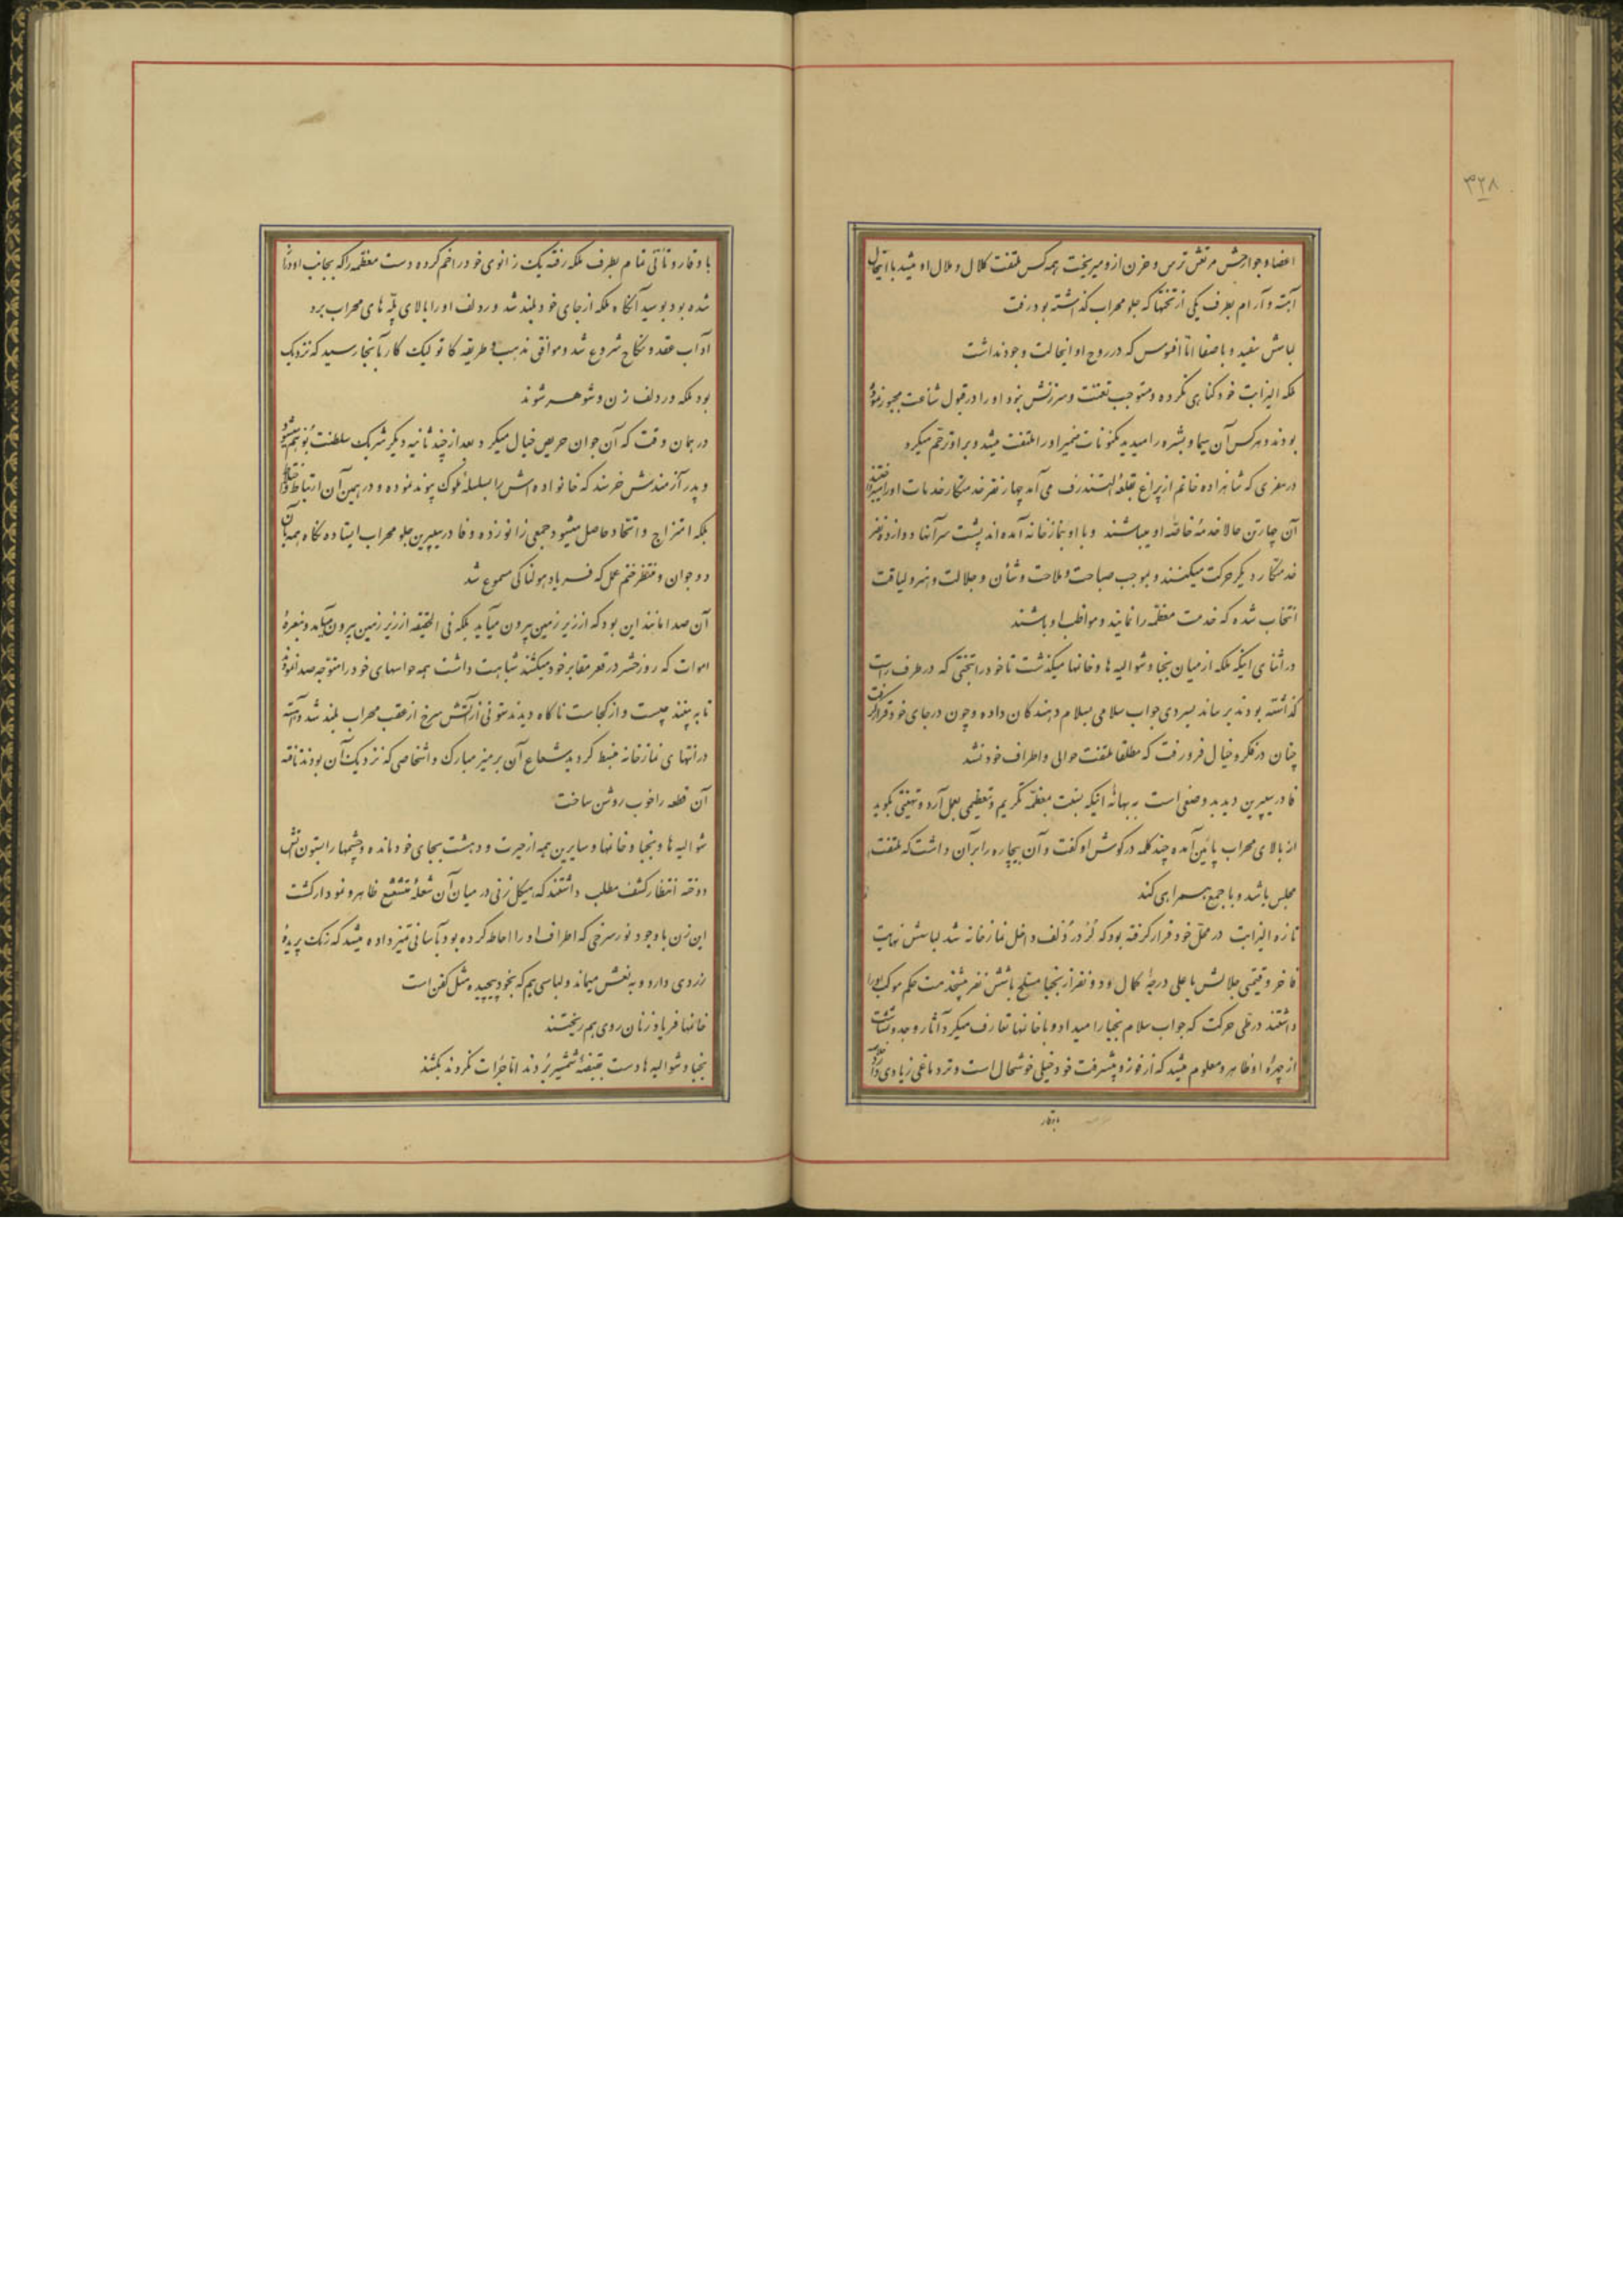 ۳۲۸
اعضا و جوارحش مرتعش ترس و حزن ازو میریخت همه کس ملتفت کلال و ملال او میشد با اینحال
آهسته و آرام بطرف یکی از تختها که جلو محراب گذاشته بود رفت
لباسش سفید و با صفا امّا افسوس که در روح او اینحالت وجود نداشت
ملکه الیزابت خود گناهی نکرده و مستوجب تعنت و سرزنش نبود او را در قبول شناعت مجبور نموده
بودند و هر کس آن سیما و بشره را میدید بمکنونات ضمیر او را ملتفت میشد و بر او ترحّم میکرد
در سفری که شاهزاده خانم از پراغ بقلعه می آمد چهار نفر خدمتکار خدمات او را
آن چارتن حالا خدمهٔ خاصّه او میباشند و با او بنمازخانه آمده اند پشت سر آنها دوازده نفر
خدمتکار دیگر حرکت میکنند و بموجب صباحت و ملاحت و شأن و جلالت و هنر و لیاقت
انتخاب شده که خدمت معظّمه را نمایند و مواظب او باشند
در اثنای اینکه ملکه از میان نجبا و شوالیه ها و خانمها میگذشت تا خود را بتختی که در طرف راست
گذاشته بودند برساند بسردی جواب سلامی بسلام دهندگان داده و چون در جای خود قرار گرفت
چنان در فکر و خیال فرو رفت که مطلقا ملتفت حوالی و اطراف خود نشد
فادر سیپرین دید بد وضعی است به بهانهٔ اینکه نسبت بمعظّمه تکریم و تعظیمی بعمل آرد و تهنیتی بگوید
از بالای محراب پائین آمده چند کلمه در گوش او گفت و آن بیچاره را بر آن داشت که ملتفت
مجلس باشد و با جمع همراهی کند
تازه الیزابت در محلّ خود قرار گرفته بود که لُرد رُدلف داخل نمازخانه شد لباسش نهایت
فاخر و قیمتی جلالش باعلی درجهٔ کمال و دو نفر از نجبا مسلح با شش نفر پیشخدمت حکم موکب او را
داشتند در طیّ حرکت که جواب سلام نجبا را میداد و با خانمها تعارف میکرد آثار وجد و بشاشت
از چهرهٔ او ظاهر و معلوم میشد که از فوز و پیشرفت خود خیلی خوشحال است و تردماغی زیادی دارد
باوقار
با وقار و تأنّی تمام بطرف ملکه رفته یک زانوی خود را خم کرده دست معظّمه را که بجانب او دراز
شده بود بوسید آنگاه ملکه از جای خود بلند شد و ردلف او را بالای پلّه های محراب برد
آداب عقد و نکاح شروع شد و موافق مذهب و طریقه کاتولیک کار بآنجا رسید که نزدیک
بود ملکه و ردلف زن و شوهر شوند
در همان وقت که آن جوان حریص خیال میکرد بعد از چند ثانیه دیگر شریک سلطنت بُوهم میشود
و پدر آزمندش خرسند که خانواده اش را بسلسلهٔ ملوک پیوند نموده و در همین آن ارتباط
بلکه امتزاج و اتحاد حاصل میشود جمعی زانو زده و فادر سیپرین جلو محراب ایستاده نگاه همه بآن
دو جوان و منتظر ختم عمل که فریاد هولناکی مسموع شد
آن صدا مانند این بود که از زیر زمین بیرون میآید بلکه فی الحقیقه از زیر زمین بیرون میآمد و بنعرهٔ
اموات که روز حشر در قعر مقابر خود میکشند شباهت داشت همه حواسهای خود را متوجه صدا نموده
تا به بینند چیست و از کجاست ناگاه دیدند ستونی از آتش سرخ از عقب محراب بلند شد و
در انتهای نمازخانه ضبط کردید شعاع آن بر میز مبارک و اشخاصی که نزدیک آن بودند تافته
آن قطعه را خوب روشن ساخت
شوالیه ها و نجبا و خانمها و سایرین همه از حیرت و دهشت بجای خود مانده و چشمها را بستون آتش
دوخته انتظار کشف مطلب داشتند که هیکل زنی در میان آن شعلهٔ متشعشع ظاهر و نمودار گشت
این زن با وجود نور سرخی که اطراف او را احاطه کرده بود بآسانی تمیز داده میشد که رنگ پریدهٔ
زردی دارد و به نعش میماند و لباسی هم که بخود پیچیده مثل کفن است
خانمها فریاد زنان روی هم ریختند
نجبا و شوالیه ها دست بقبضهٔ شمشیر بُردند امّا جرأت نکردند بکشند